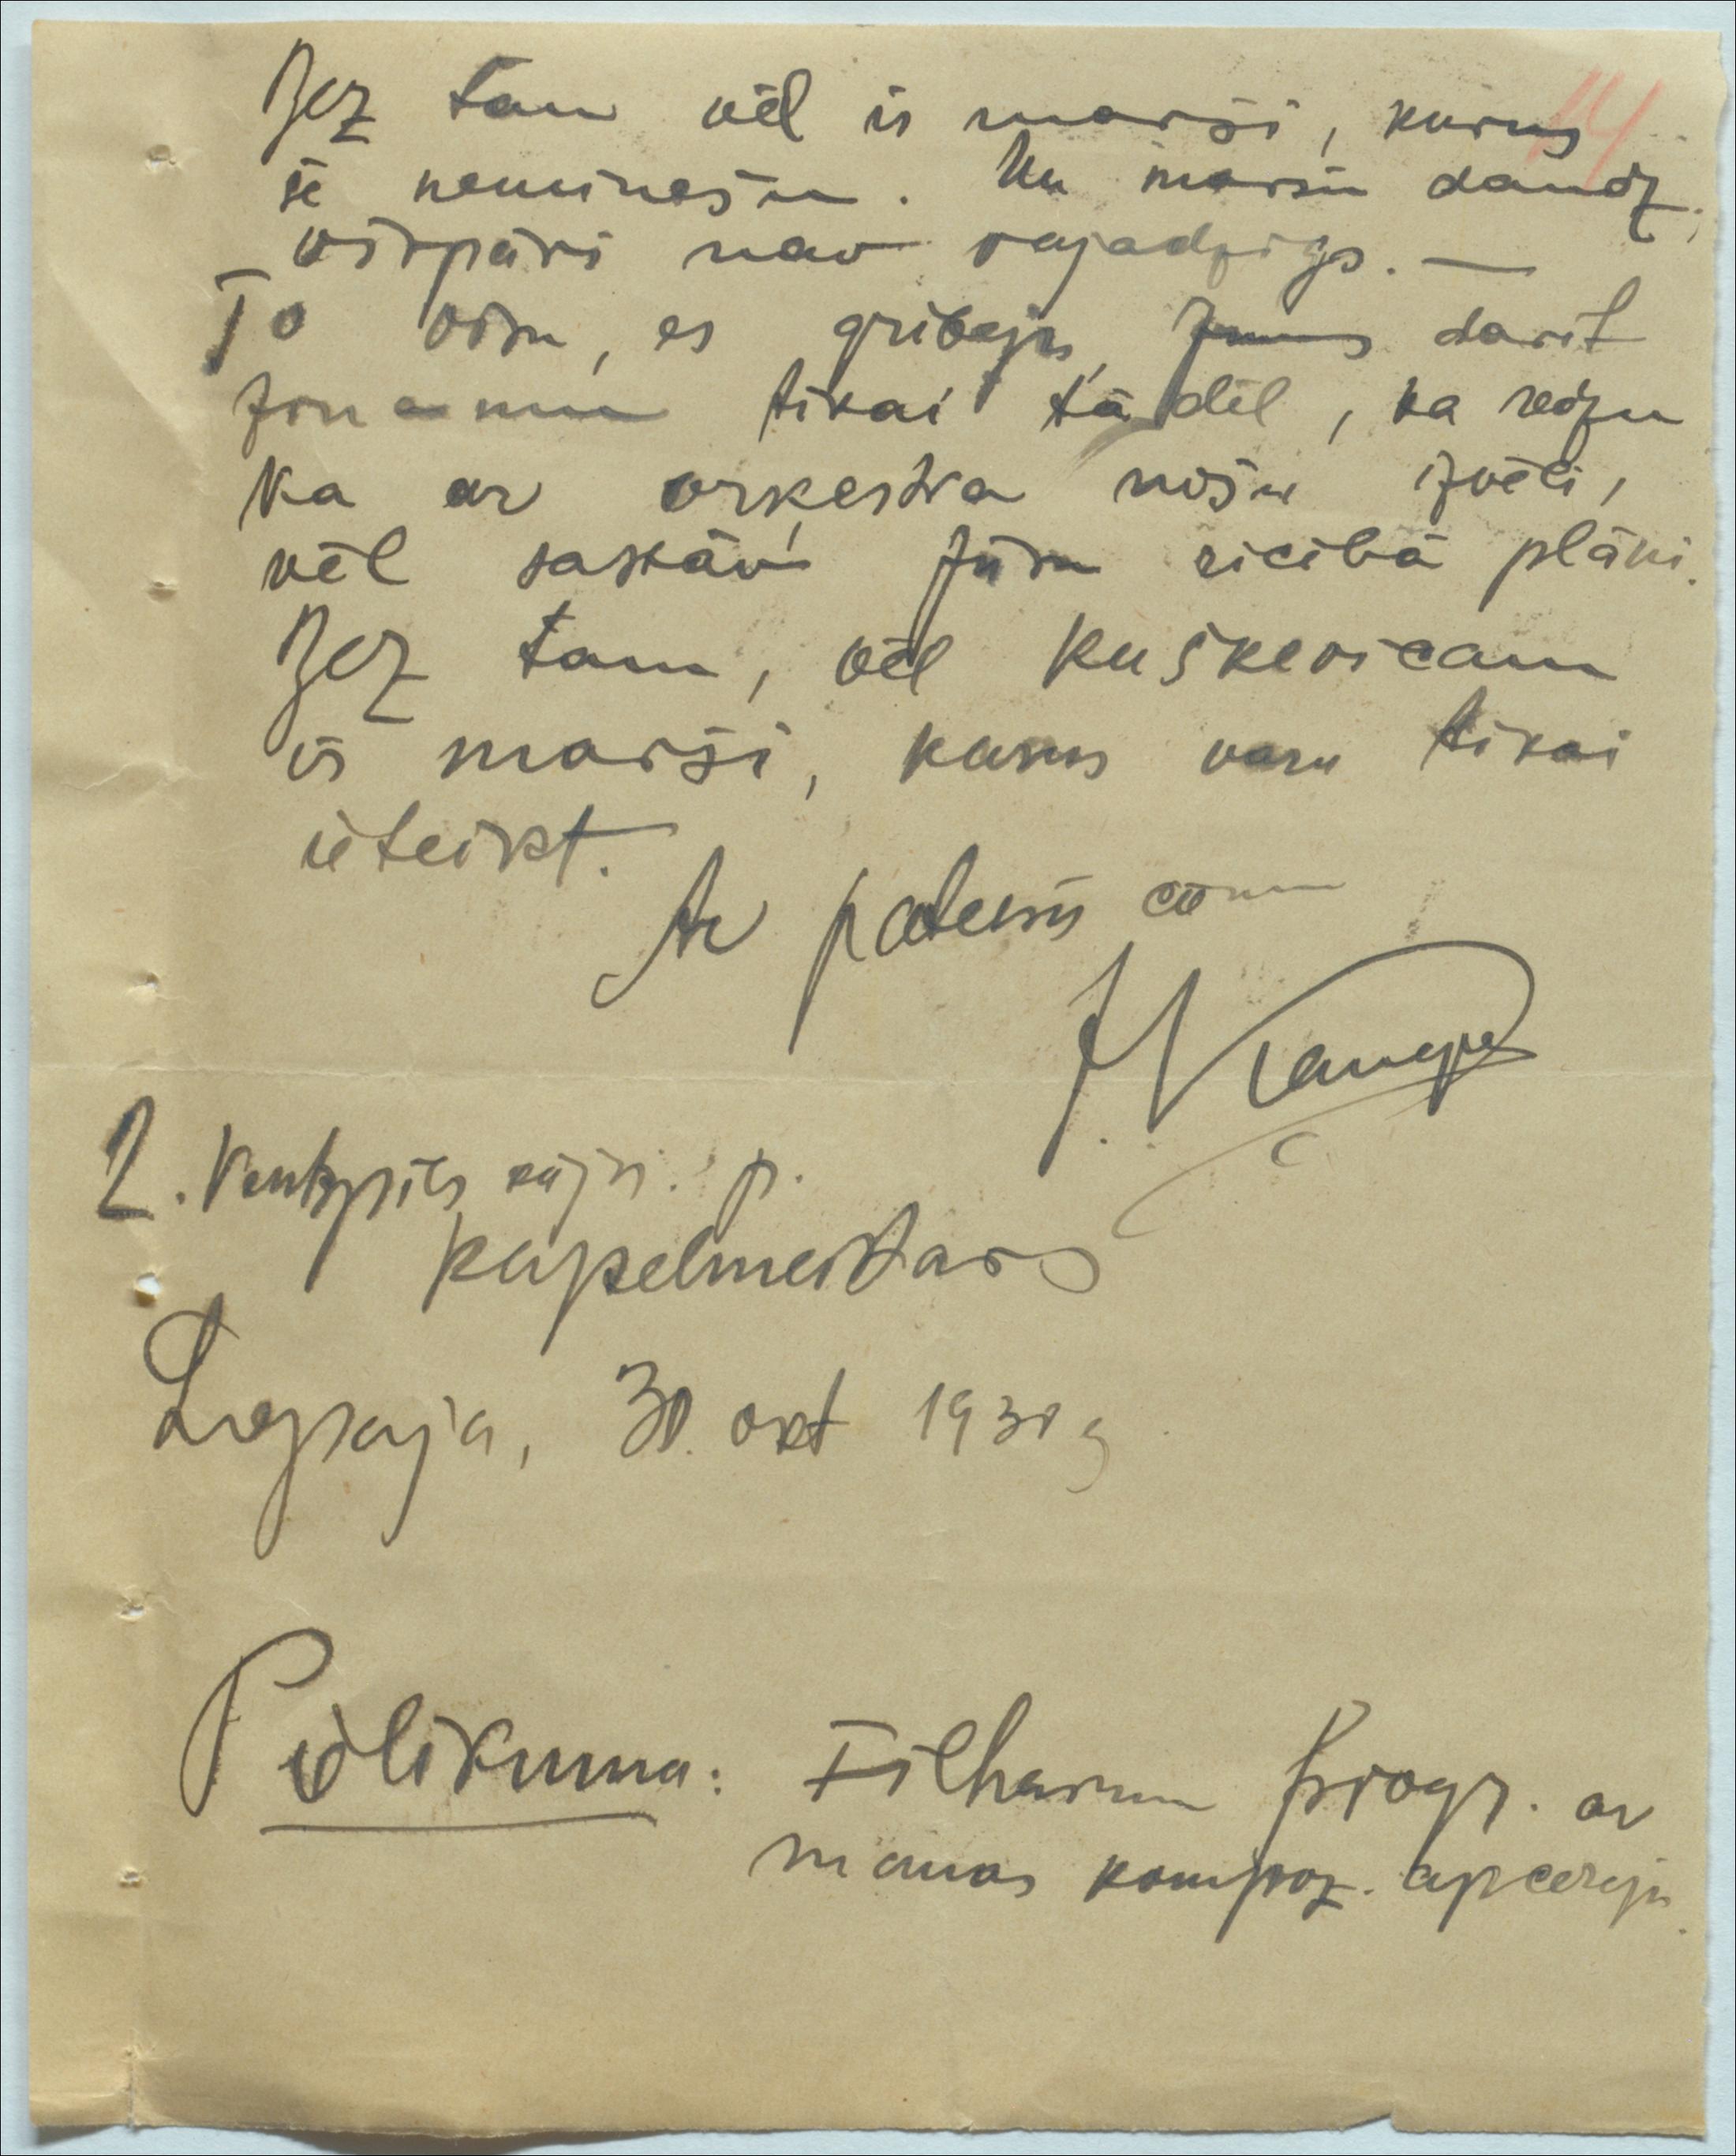 14
Bez tam vēl ir marši, kurus
še neminešu. Un maršu daudz
vispāri nav vajadzigs. —
To visu, es gribeju Jums darit
zinamu tikai tādēļ, ka redzu
ka ar orķestra nošu izvēli,
vēl sastāv Jūsu ricibā plāni.
Bez tam, vēl Kuškevicam
ir marši, kurus varu tikai
ieteikt.
Ar patiesu cieņu
2. Ventspils kājn. p.
kapelmeistars
Liepaja, 30. okt 1930 g
Pielikuma: Filharm progr. ar
manas kompoz. apceręju